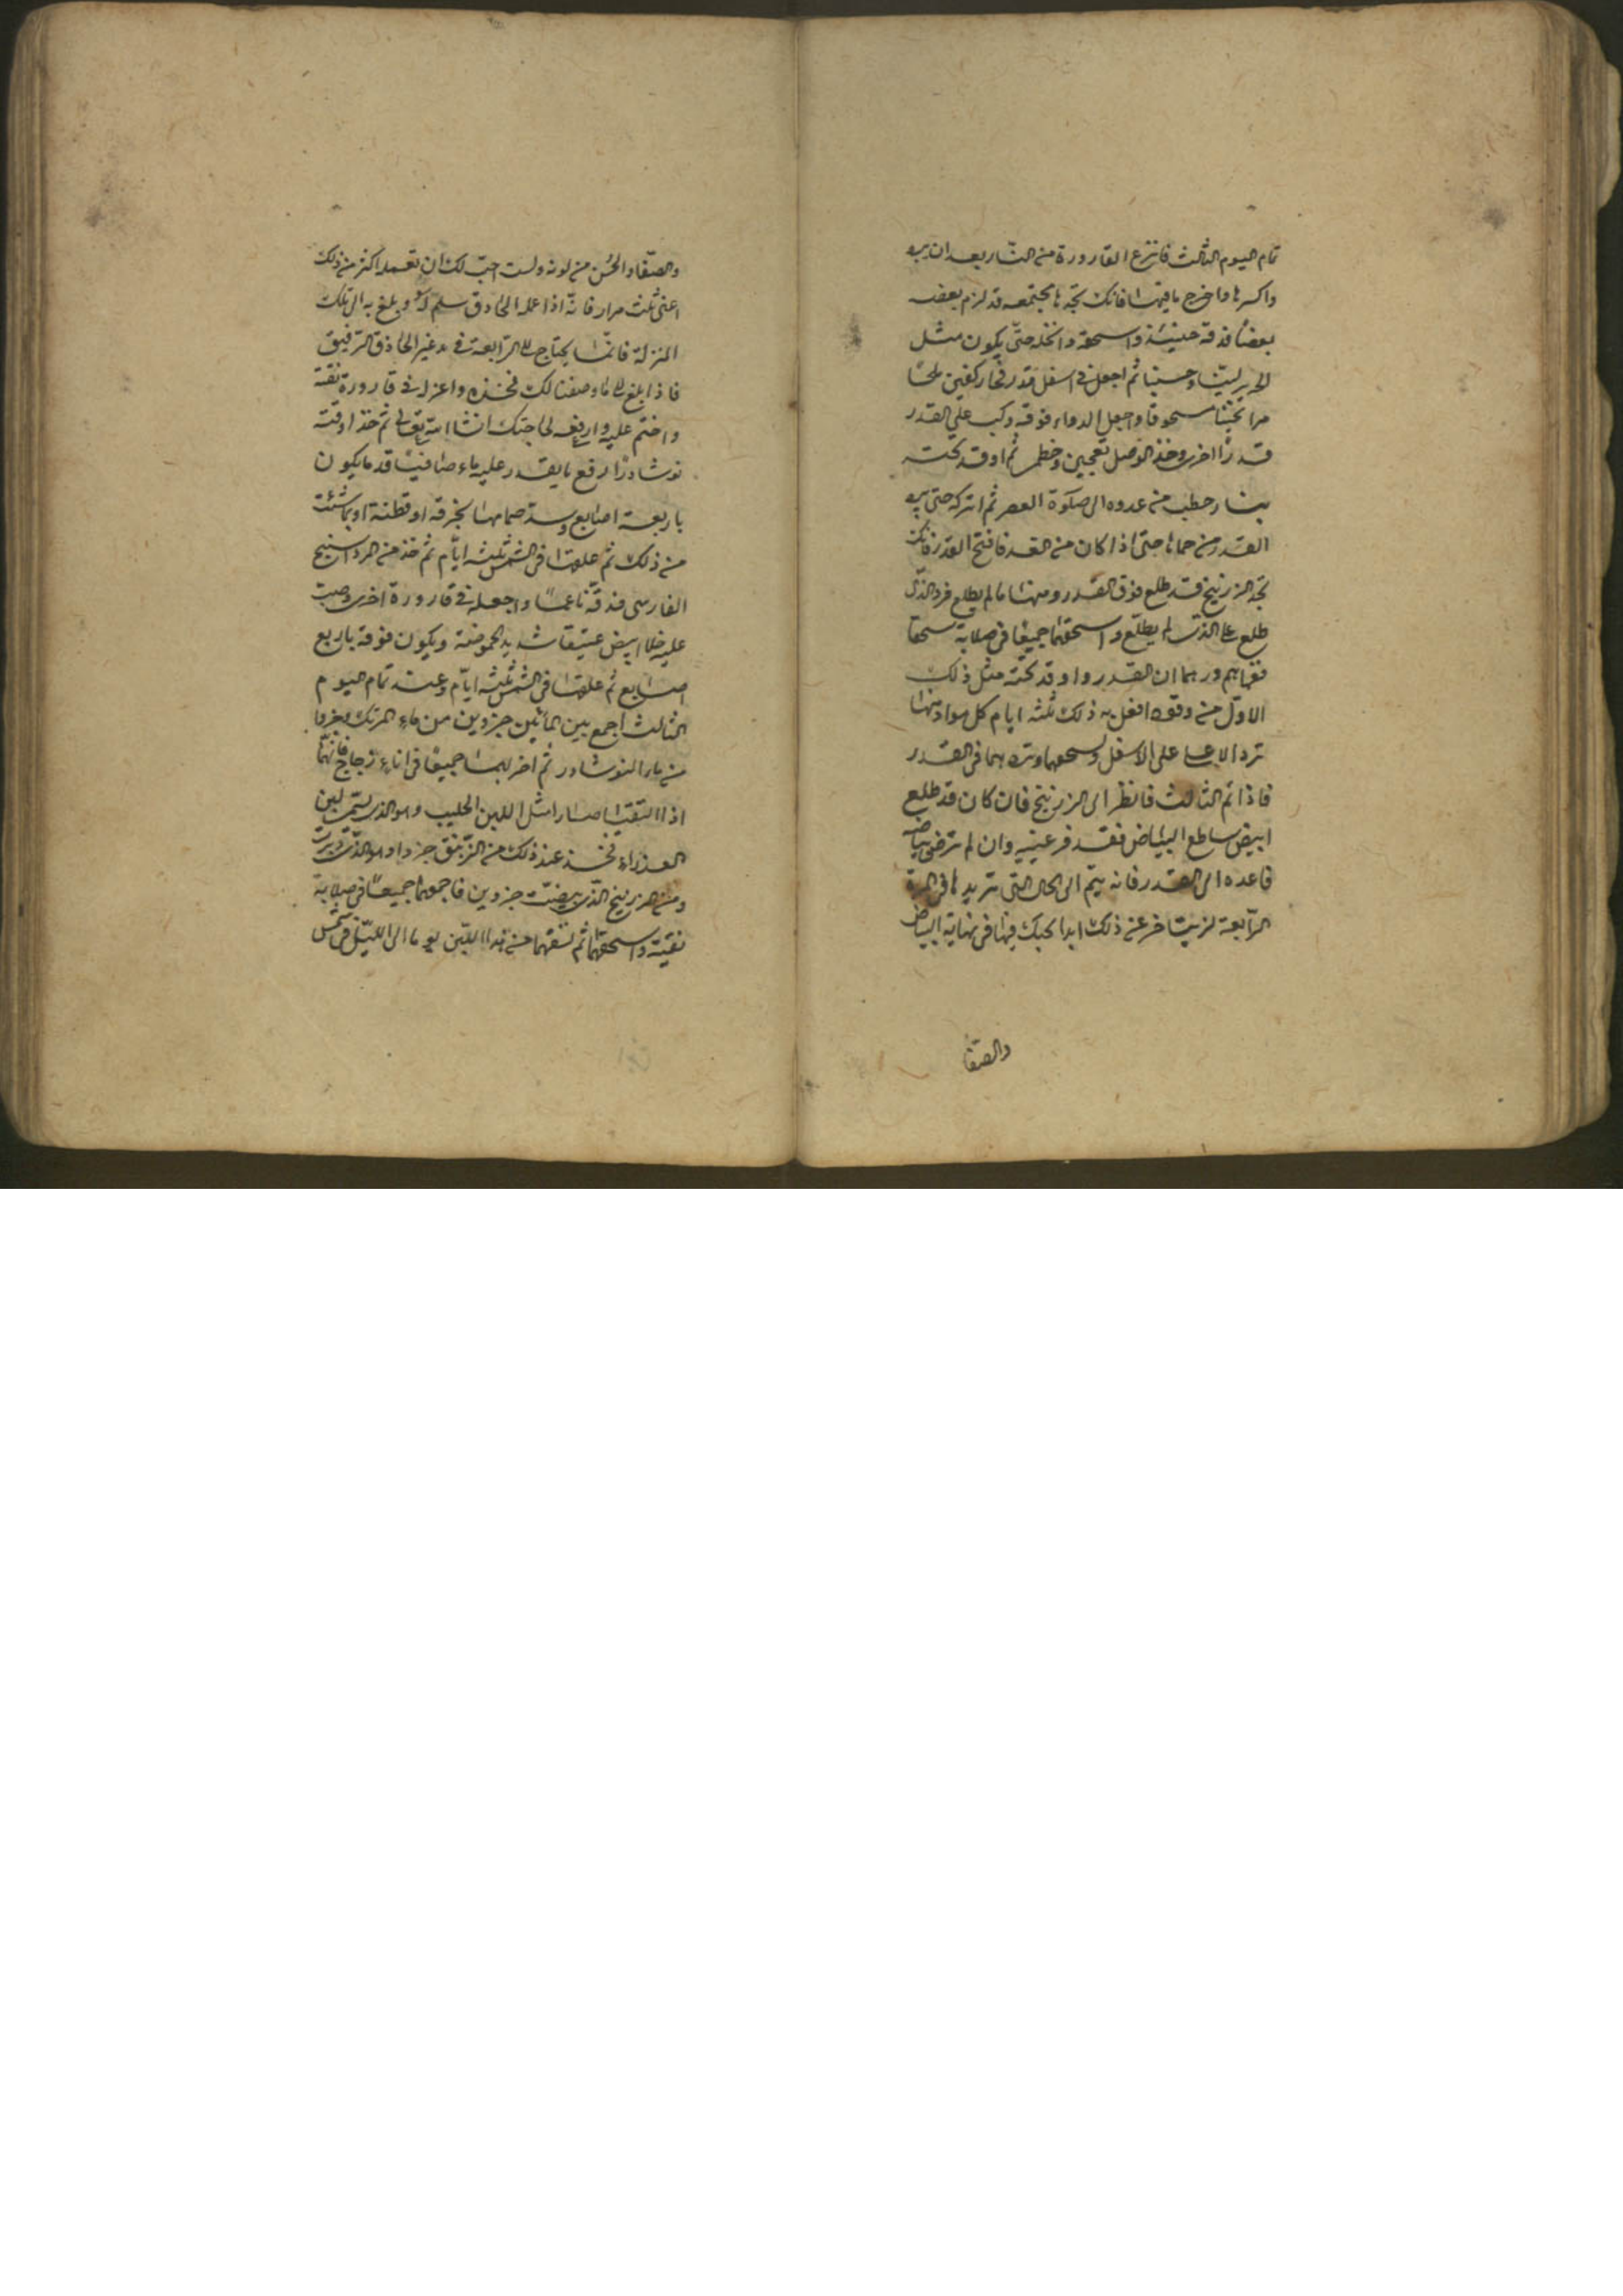 تمام اليوم الثالث فانتزع القارورة من النار بعد ان يبرد
واكسرها واخرج ما فيها فانك تجدها مجتمعه قد لزم بعضه
بعضًا فدقه حينئذ واسحقه وانخله حتى يكون مثل
الحرير لينا وحسنا ثم اجعل في اسفل قدر فخار كفين ملحًا
مرا مسحوقا واجعل الدواء فوقه وركب على القدر
قدرًا اخرى وخذ الوصل بعجين وخطمى ثم اوقد تحته
بنار حطب من غدوه الى صلوة العصر ثم اتركه حتى يبرد
القدر من حماها حتى اذا كان من الغد فافتح القدر فانك
تجد الزرنيخ قد طلع فوق القدر ومنها ما لم يطلع فرد الذى
طلع على الذى لم يطلع واسحقهما جميعًا فى صلاية سحقا
القدر واوقد تحته مثل ذلك
الاول من وقود افعل به ذلك ثلثه ايام كل يوم
ترد الاعلى على الاسفل وتسحقهما وتردهما فى القدر
فاذا تم الثالث فانظر الى الزرنيخ فان كان قد طلع
ابيض ساطع البياض فقد فرغ منه وان لم ترضى بياضه
فاعده الى القدر فانه يتم الى الحال التى تريدها فى المرة
الرابعة لن يتاخر عن ذلك ابدا فى نهاية البياض
والصفا
والصفا والحسن من لونه ولست احب لك ان تعمله اكثر من ذلك
اعنى ثلث مرار فانه اذا عمله الحاذق سلم له وبلغ به الى تلك
المنزلة فانما يحتاج الى الرابعة فى يد غير الحاذق الرفيق
فاذا بلغ الى ما وصفنا لك فخذه واعزله فى قارورة نقية
واختم عليه وارفعه لحاجتك انشا الله تعالى ثم خذ اوقية
نوشادرًا عليه ماء صافيًا قدر ما يكون
باربعة اصابع وسد صمامها بخرقه او قطنة او بما شئت
من ذلك ثم علقها فى الشمس ثلثه ايام ثم خذ من المرداسنج
الفارسى فدقه ناعمًا واجعله فى قارورة اخرى وصب
عليه خلا ابيض عتيقا شديد الحموضة ويكون فوقه باربع
اصابع ثم علقها فى الشمس ثلثه ايام وعند تمام اليوم
الثالث اجمع بين المائين جزوين من ماء المرتك وجزوا
من ماء النوشادر ثم اضربهما جميعًا فى اناء زجاج فانهما
اذا التقيا صارا مثل اللبن الحليب وهو الذى يسمى لبن
العذراء فخذ عند ذلك من الزئبق جزوا وهو الذى دبرت
ومن الزرنيخ الذى بيضت جزوين فاجمعهما جميعًا فى صلاية
نقية واسحقهما ثم تسقهما من هذا اللبن يوما الى الليل فى شمس